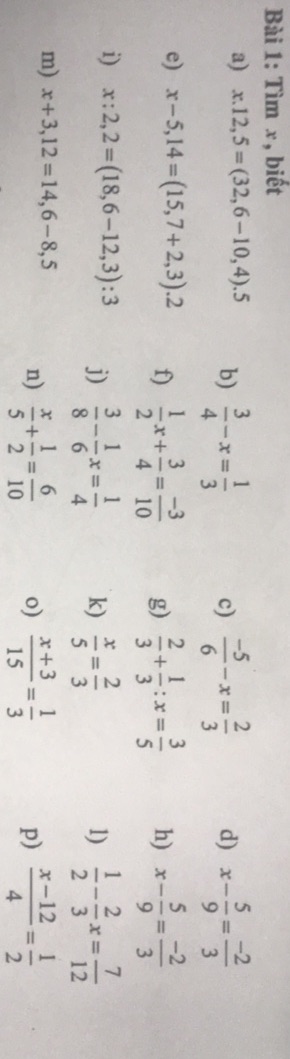 Bài 1: Tìm x, biết
a) x.12,5 = (32,6−10,4).5 b) 3/4 − x = 1/3 c) −5/6 − x = 2/3 d) x − 5/9 = −2/3
e) x − 5,14 = (15,7+2,3).2 f) 1/2 x + 3/4 = −3/10 g) 2/3 + 1/3 : x = 3/5 h) x − 5/9 = −2/3
i) x : 2,2 = (18,6−12,3):3 j) 3/8 − 1/6 x = 1/4 k) x/5 = 2/3 l) 1/2 − 2/3 x = 7/12
m) x+3,12 = 14,6−8,5 n) x/5 + 1/2 = 6/10 o) x+3/15 = 1/3 p) x−12/4 = 1/2